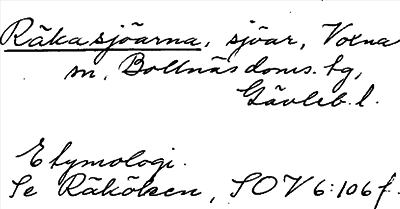 Räkasjöarna, sjöar, Voxna
sn, Bollnäs doms. tg,
Gävleb. l.
Etymologi.
Se Räkölsen, SOV 6:106 f.